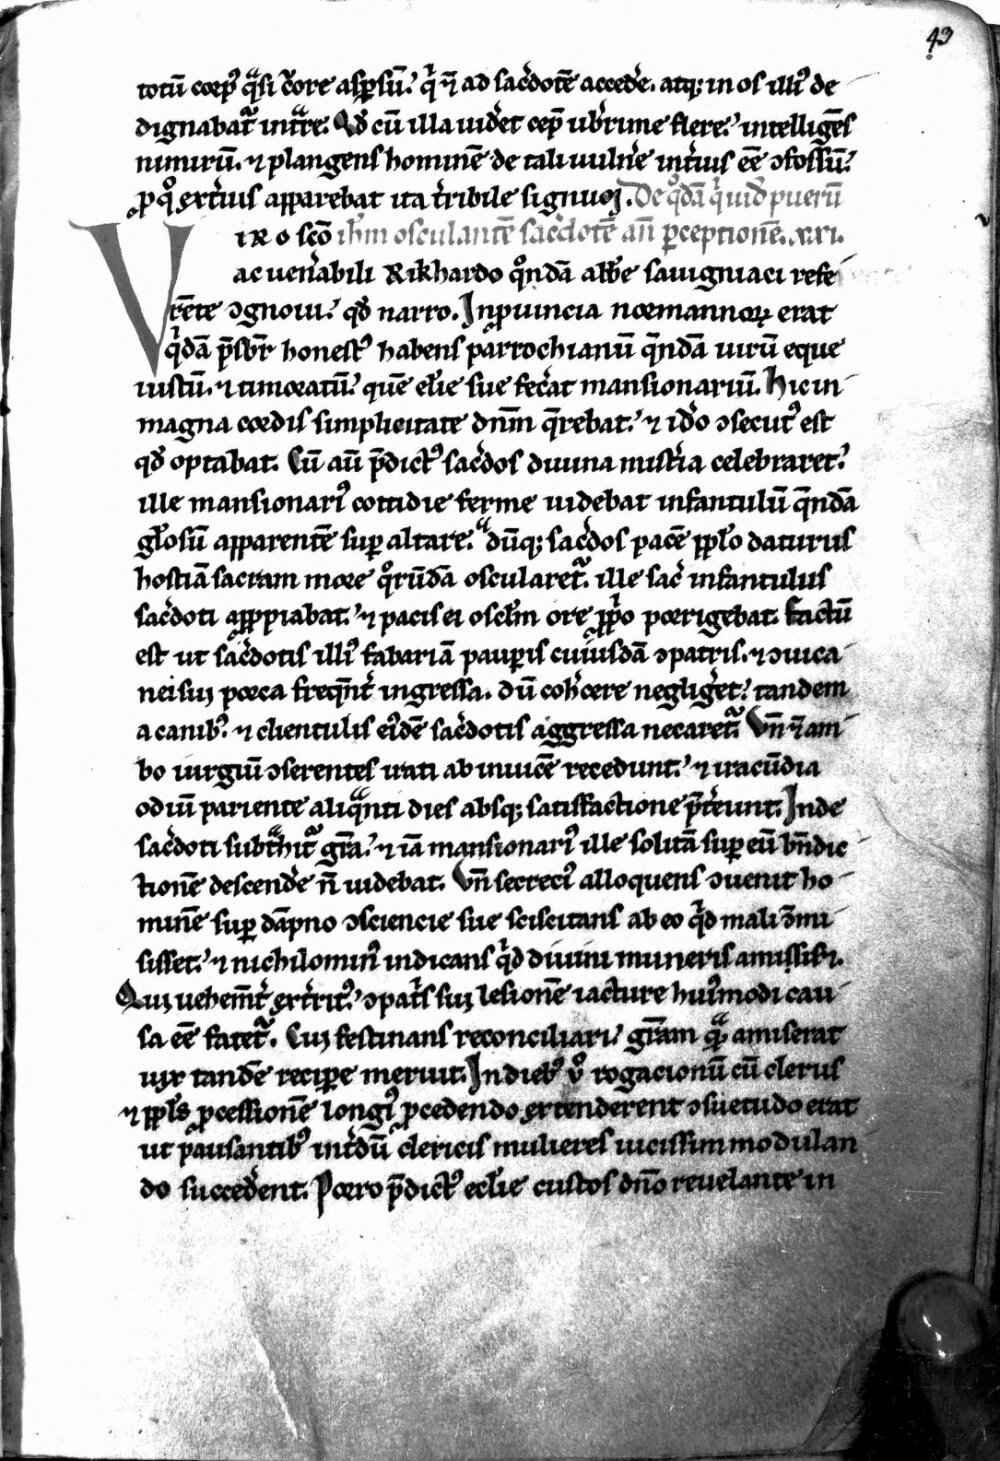 43
totū corp᷒ q̄si c̄ore asp̱sū. q̄ n̄ ad sac̄dotē accede. atq; in os illi᷒ de
dignabat᷑ int̄re. Qd̄ cū illa uideret cep̄ uberrime flere. intelligēs
nimirū. ⁊ plangens hominē de tali uulnē int̄ius eē ꝯfossū.
ꝓ q̊ ext̄ius apparebat ita t̄ribile signuꝫ. De q̊dā q̄ uid̄ puerū
iRo scō ih̄m osculantē sac̄dotē an̄ ꝑceptionē. xxi.
ac uen̄abili Rikhardo q̊ndā abb̄e sauigniaci refe
rēte ꝯgnoui. qd̄ narro. In ꝓuincia normannoꝝ erat
q̄dā p̄sbr̄ honest᷒ habens parrochianū q̄ndā uirū eque
iustū. ⁊ timoratū. quē ec̄lie sue fec̄at mansionariū. Hic in
magna cordis simplicitate dn̄m q̄rebat. ⁊ id̄o ꝯsecut᷒ est
qd̄ optabat. Cū aū p̄dict᷒ sac̄dos diuina mist̄ia celebraret.
ille mansionari᷒ cottidie ferme uidebat infantulū q̄ndā
gl̄osū apparentē suꝑ altare. dūq; sac̄dos pacē ppl̄o daturus
hostiā sacram more q̊rūdā oscularet᷑. ille sac̄ infantulus
sac̄doti appropiabat. ⁊ pacis ei oscl̄m ore ꝓprio porrigebat. factū
est ut sac̄dotis illi᷒ fabariā pauꝑis cuiusdā ꝯpatris. ⁊ ꝯuica
nei sui porca freq̄nt̄ ingressa. dū coh̄cere negligeret. tandem
a canib᷒. ⁊ clientulis ei᷒dē sac̄dotis aggressa necaret᷑. Vn̄ ⁊ am
bo iurgiū ꝯserentes irati ab inuicē recedunt. ⁊ iracūdia
odiū pariente aliq̄nti dies absq; satisfactione p̄t̄eunt. Inde
sac̄doti subt̄hit᷑ gr̄a. ⁊ iā mansionari᷒ ille solitā suꝑ eū bn̄dic
tionē descende n̄ uidebat. Vn̄ secreci᷒ alloquens ꝯuenit ho
minē suꝑ dāpno ꝯsciencie sue sciscitans ab eo q̄d mali ꝯmi
sisset. ⁊ nichilomin᷒ indicans q̄d diuini muneris amissis̄.
Qui uehem̄t̄ ext̄rit᷒. ꝯpat̄s sui lesionē iacture hui᷒modi cau
sa eē fatet᷑. Cui festinans reconciliari. gr̄am quā amiserat
uix tandē reciꝑe meruit. In dieb᷒ ū rogacionū cū clerus
⁊ ppl̄s ꝓcessionē longi᷒ ꝓcedendo extenderent ꝯsuetudo erat
ut pausantib᷒ int̄dū clericis mulieres uicissim modulan
do succedent. Porro p̄dict᷒ ecl̄ie custos dn̄o reuelante in